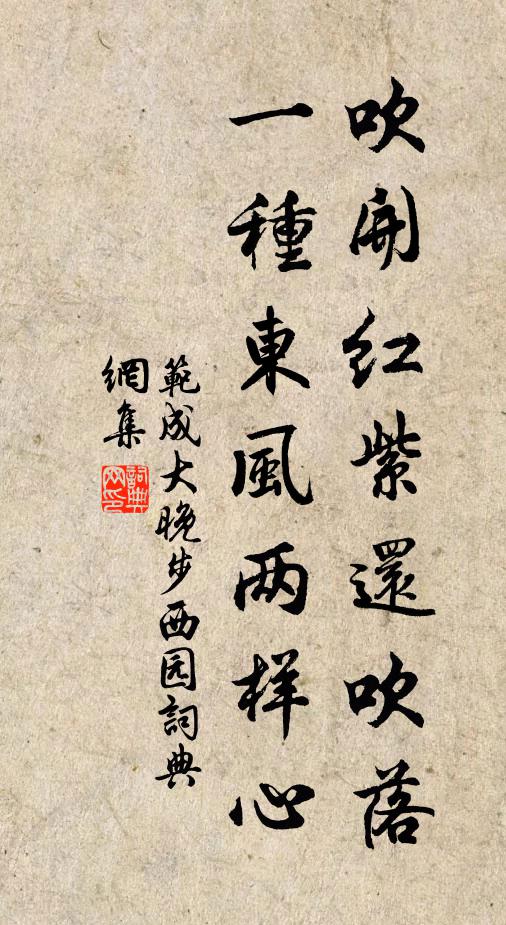 吹開紅紫還吹落
一種東風两样心
範成大晚步西园詞典
網集
詞典
网印